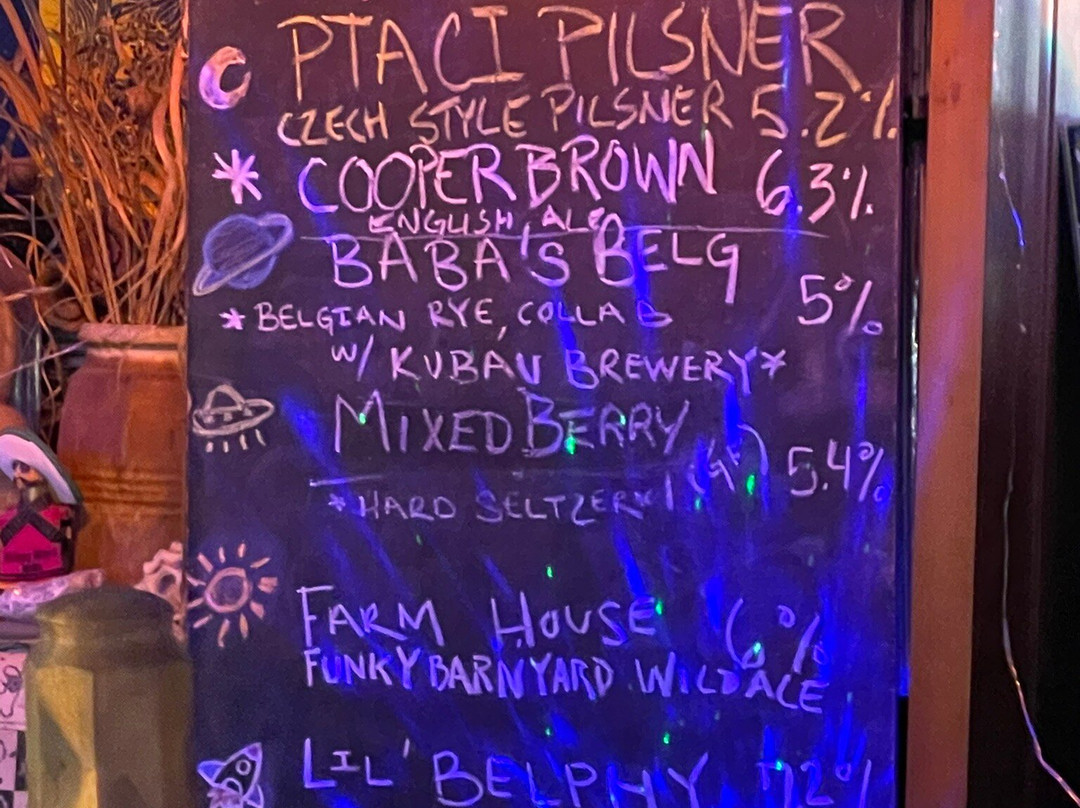 PTACI PILSNER
CZECH STYLE PILSNER 5.2%
COOPER BROWN 6.3%
ENGLISH ALE
BABA'S BELG
5%
*BELGIAN RYE, COLLAB
W/ KUBAU BREWERY*
MIXED BERRY
5.4%
*HARD SELTZER*
FARM HOUSE 6%
FUNKY BARNYARD WILD ALE
LIL' BELPHY